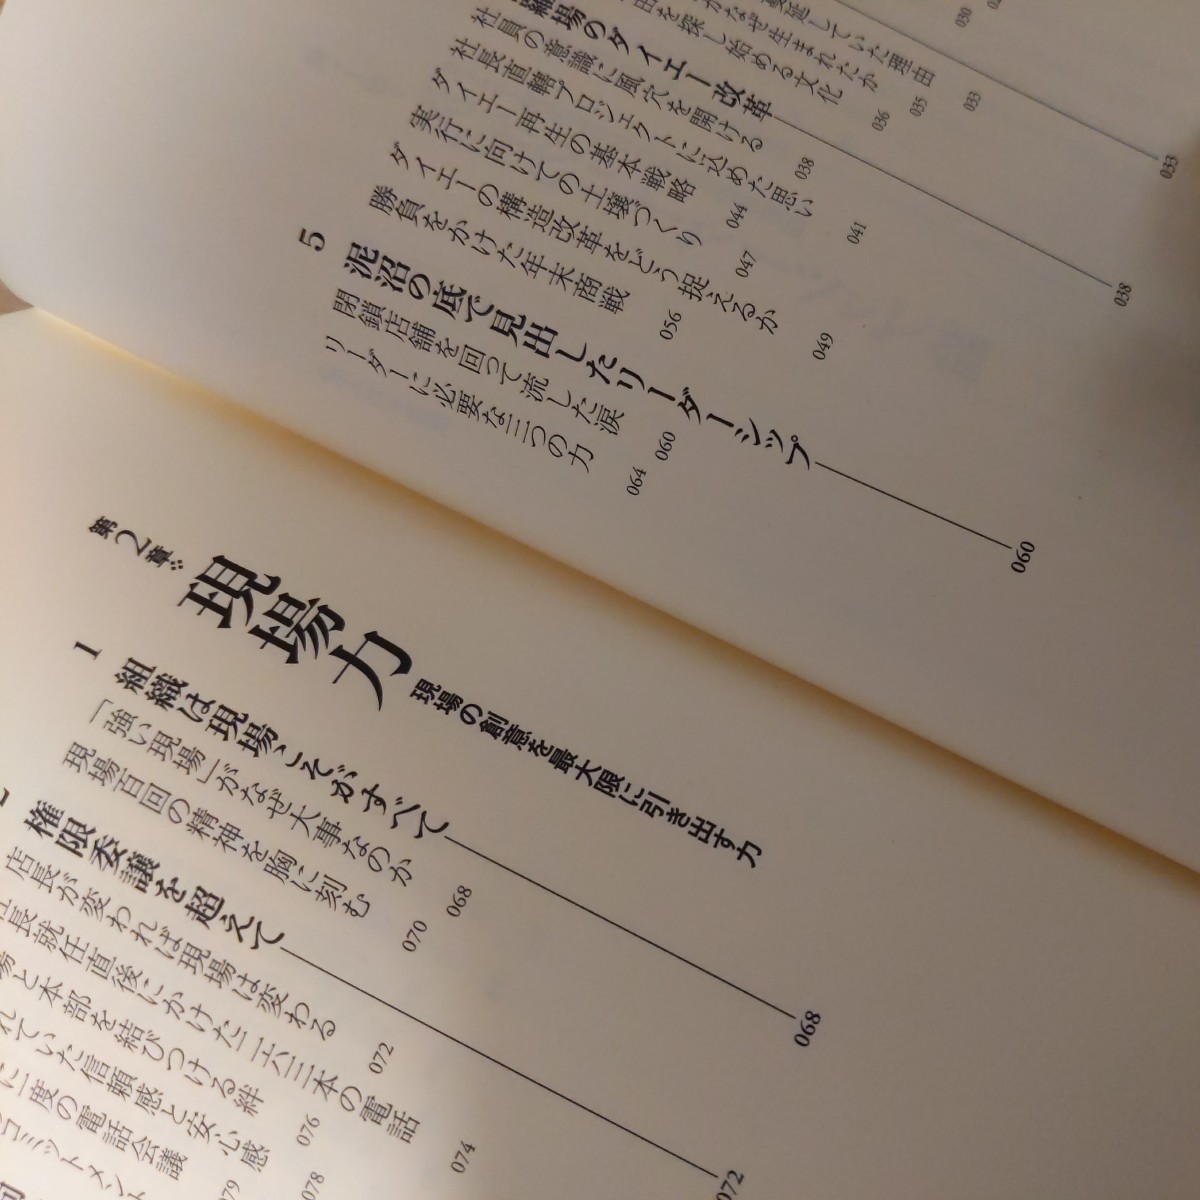 蔓延していた理由 033
がなぜ生まれたか 035
由を探し始める文化 036
場のダイエー改革 038
社員の意識に風穴を開ける 038
社長直轄プロジェクトに込めた思い 041
ダイエー再生の基本戦略 044
実行に向けての土壌づくり 047
ダイエーの構造改革をどう捉えるか 049
勝負をかけた年末商戦 056
5 泥沼の底で見出したリーダーシップ 060
閉鎖店舗を回って流した涙 060
リーダーに必要な三つの力 064
第2章
現場力
現場の創意を最大限に引き出す力
1 組織は現場こそがすべて 068
「強い現場」がなぜ大事なのか 068
現場百回の精神を胸に刻む 070
権限委譲を超えて 072
店長が変われば現場は変わる 072
社長就任直後にかけた二六三本の電話 074
場と本部を結びつける絆 076
れていた信頼感と安心感 078
に一度の電話会議 079
コミットメント